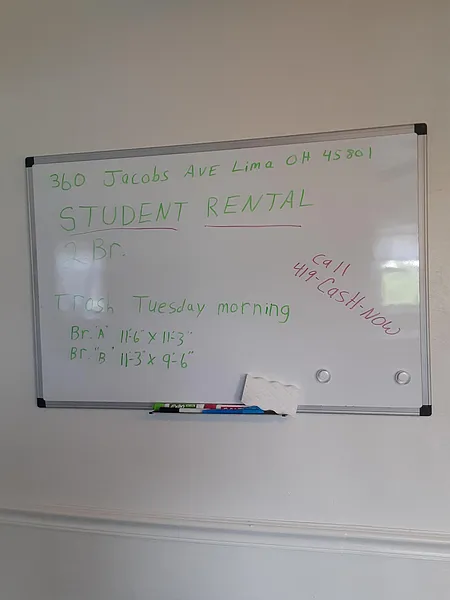 360 Jacobs AVE Lima OH 45801
STUDENT RENTAL
2 Br.
Call
419-CasH-Now
Trash Tuesday morning
Br. "A" 11'-6" x 11'-3"
Br. "B" 11'-3" x 9'-6"